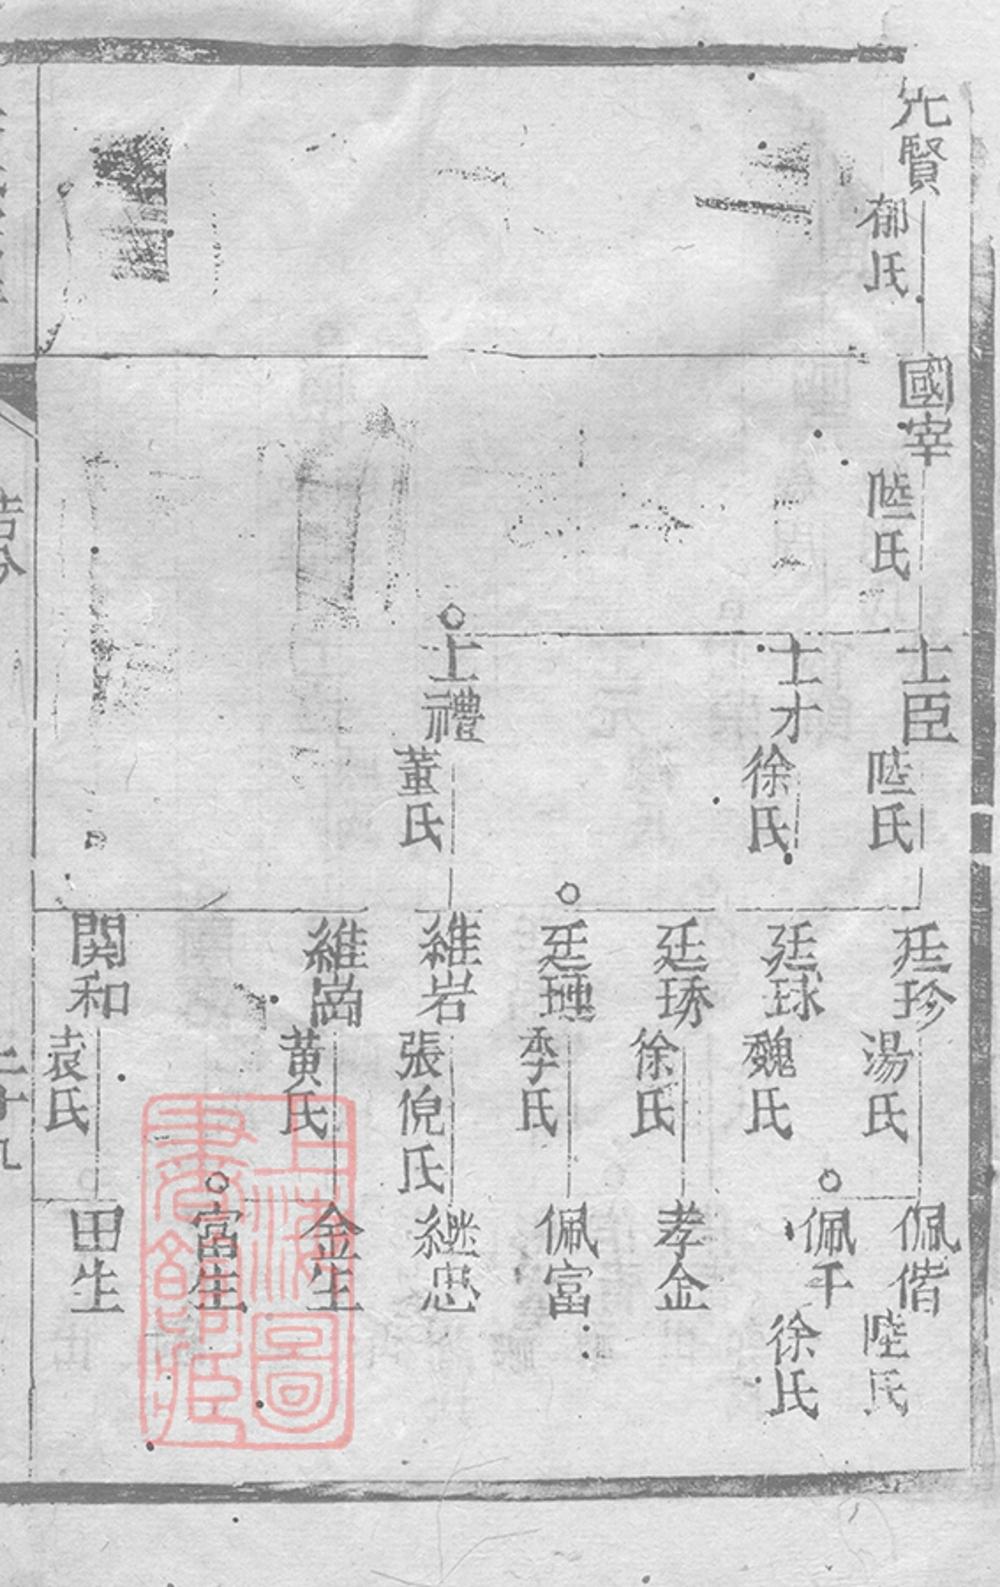 元賢 郁氏
國宰 陸氏
士臣 陸氏
士才 徐氏
士禮 董氏
廷珍 湯氏
廷球 魏氏
廷琇 徐氏
廷璉 李氏
維岩 張倪氏
維崗 黄氏
関和 袁氏
佩偕 陸氏
佩千 徐氏
孝金
佩富
継忠
金生
富生
田生
二十九
上海圖書館藏